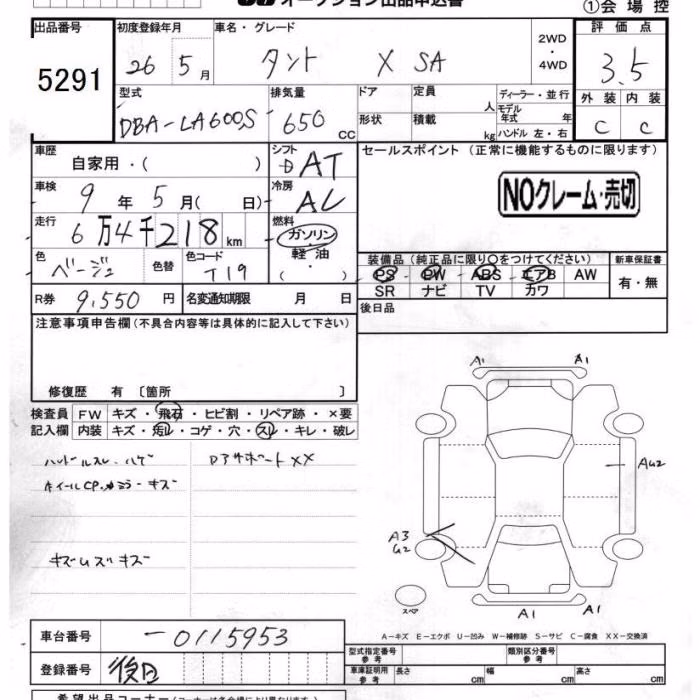 オークション出品申込書
①会場控
出品番号
5291
初度登録年月
26 5月
車名・グレード
タント X SA
2WD
・
4WD
評価点
3.5
外装 内装
C C
型式
DBA-LA600S
排気量
650 CC
ドア
定員
人
ディーラー・並行
モデル年式 年
形状
積載
kg
ハンドル 左・右
車歴
自家用・( )
シフト
AT
セールスポイント (正常に機能するものに限ります)
NOクレーム・売切
車検
9年 5月( 日)
冷房
走行
6万4千218km
燃料
ガソリン
軽油
( ・ )
色
ベージュ
色替
色コード
T19
装備品 (純正品に限り○をつけてください)
新車保証書
PS PW ABS エアB AW
SR ナビ TV カワ
有・無
R券
9,550円
名変通知期限 月 日
後日品
注意事項申告欄(不具合内容等は具体的に記入して下さい)
修復歴 有〔箇所 〕
検査員
記入欄
FW キズ・飛石・ヒビ割・リペア跡・×要
内装 キズ・汚レ・コゲ・穴・スレ・キレ・破レ
ハンドルスレ、ハゲ
Dアサボートxx
ホイールCP、ミラーキズ
キズムズキズ
A1 A1
AU2
A3
U2
スペア
A1 A1
A-キズ E-エクボ U-凹み W-補修跡 S-サビ C-腐食 XX-交換済
車台番号
-0115953
型式指定番号
参考
類別区分番号
参考
登録番号
後日
車庫証明用
参考
長さ cm 幅 cm 高さ cm
希望出品コーナー